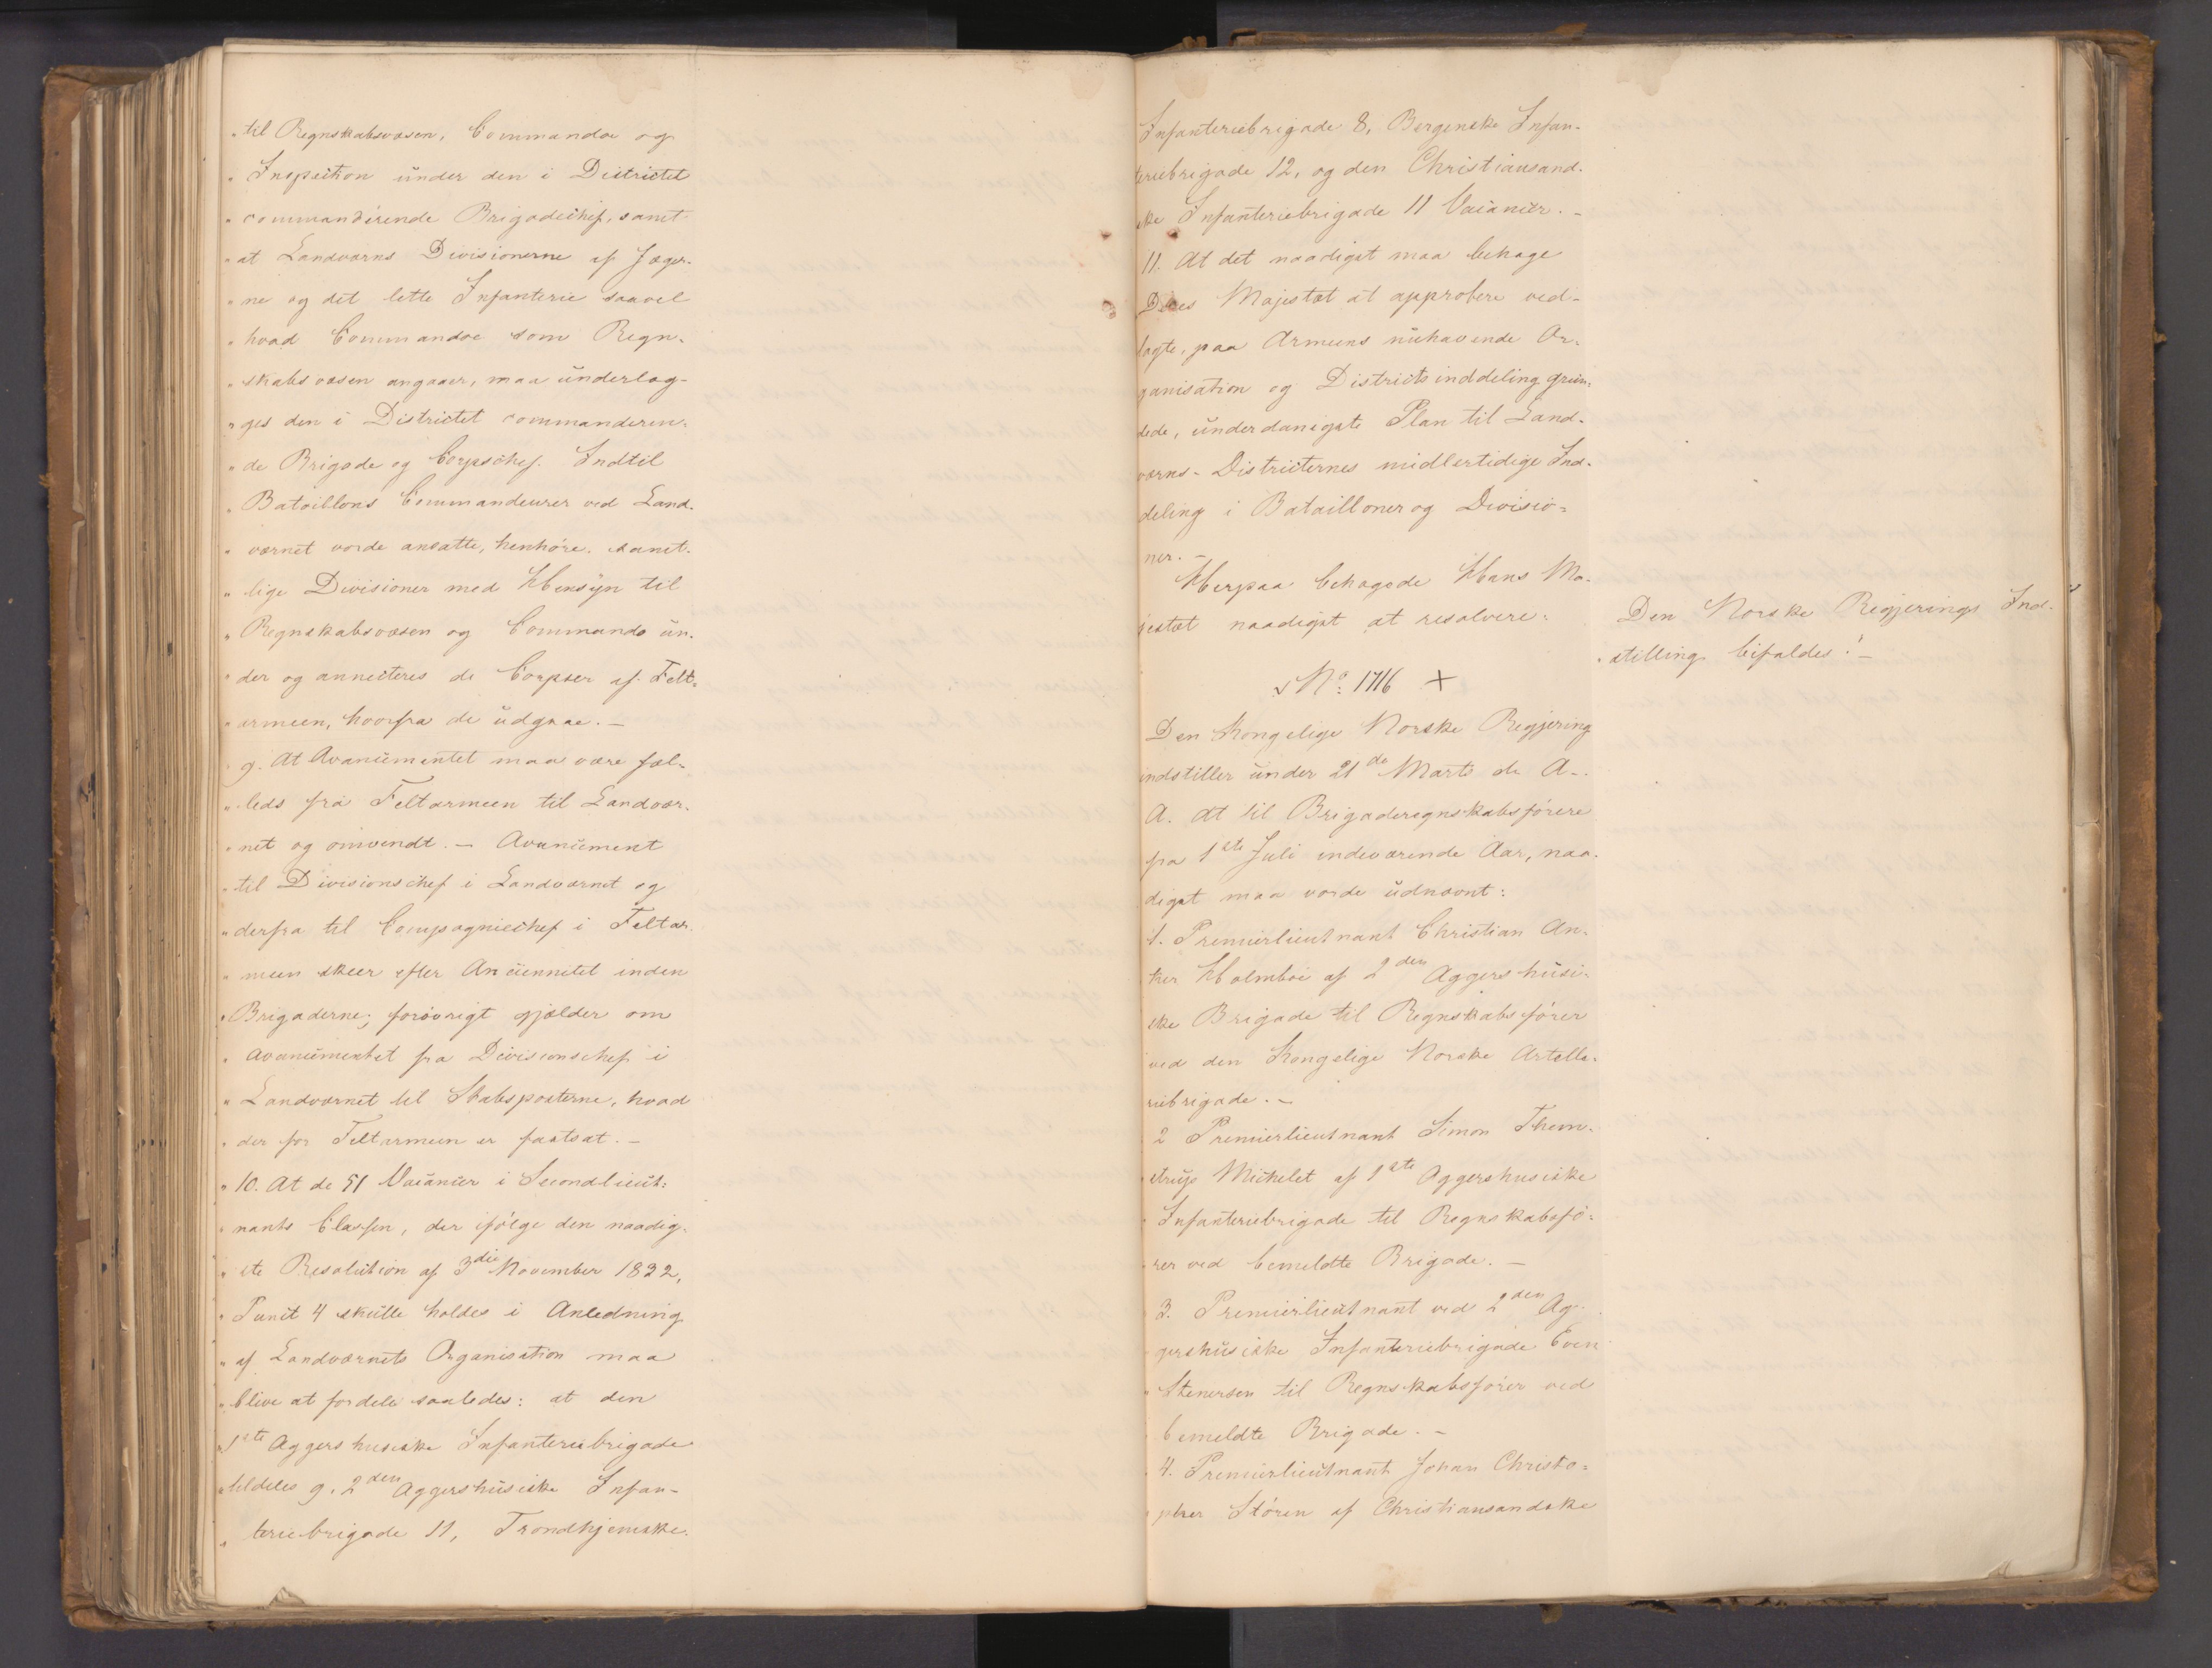 " til Regnskabsvæsen, Commandoe og
" Inspection under den i Districtet
" commanderende Brigadechef, samt
" at Landværns Divisionerne af Jæger-
" ne og det lette Infanterie saavel
" hvad Commandoe som Regn-
" skabsvæsen angaaer, maa underlæg-
" ges den i Districtet commanderen-
" de Brigade og Corpschef. Indtil
" Bataillons Commandeurer ved Land-
" værnet vorde ansatte, henhøre samt-
" lige Divisioner med Hensyn til
" Regnskabsvæsen og Commando un-
" der og annecteres de Corpser af Felt-
" armeen, hvorfra de udgaae. —
" 9. At Avancementet maa være fæl-
" leds fra Feltarmeen til Landvær-
" net og omvendt. — Avancement
" til Divisionschef i Landværnet og
" derfra til Compagniechef i Feltar-
" meen skeer efter Anciennitet inden
" Brigaderne; forøvrigt gjælder om
" Avancementet fra Divisionschef i
" Landværnet til Stabsposterne, hvad
" der for Feltarmeen er fastsat. —
" 10. At de 51 Vacancer i Secondlieut-
" nants Classen, der ifølge den naadig-
" ste Resolution af 3die November 1822,
" Punct 4 skulle holdes i Anledning
" af Landværnets Organisation maa
" blive at fordele saaledes: at den
" 1ste Aggershusiske Infanteriebrigade
" tildeles 9, 2den Aggershusiske Infan-
" teriebrigade 11, Trondhjemske
Infanteriebrigade 8, Bergenske Infan-
teriebrigade 12, og den Christiansand-
ske Infanteriebrigade 11 Vacancer. —
11. At det naadigst maa behage
Deres Majestæt at approbere ved-
lagte, paa Armeens nuhavende Or-
ganisation og Districtsinddeling grun-
dede, underdanigste Plan til Land-
værns-Districternes midlertidige Ind-
deling i Batailloner og Divisio-
ner. —
Herpaa behagede Hans Ma-
jestæt naadigst at resolvere:
Den Norske Regjerings Ind-
stilling bifaldes! —
No: 1716 +
Den Kongelige Norske Regjering
indstiller under 21de Marts d. A.
A. At til Brigaderegnskabsførere
fra 1ste Juli indeværende Aar, naa-
digst maa vorde udnævnt:
1. Premierlieutnant Christian An-
ker Holmboe af 2den Aggershusi-
ske Brigade til Regnskabsfører
ved den Kongelige Norske Artille-
riebrigade. —
2 Premierlieutnant Simon Them-
strup Michelet af 1ste Aggershusiske
Infanteriebrigade til Regnskabsfø-
rer ved bemeldte Brigade. —
3. Premierlieutnant ved 2den Ag-
gershusiske Infanteriebrigade Even
Stenersen til Regnskabsfører ved
bemeldte Brigade. —
4. Premierlieutnant Johan Christo-
pher Støren af Christiansandske